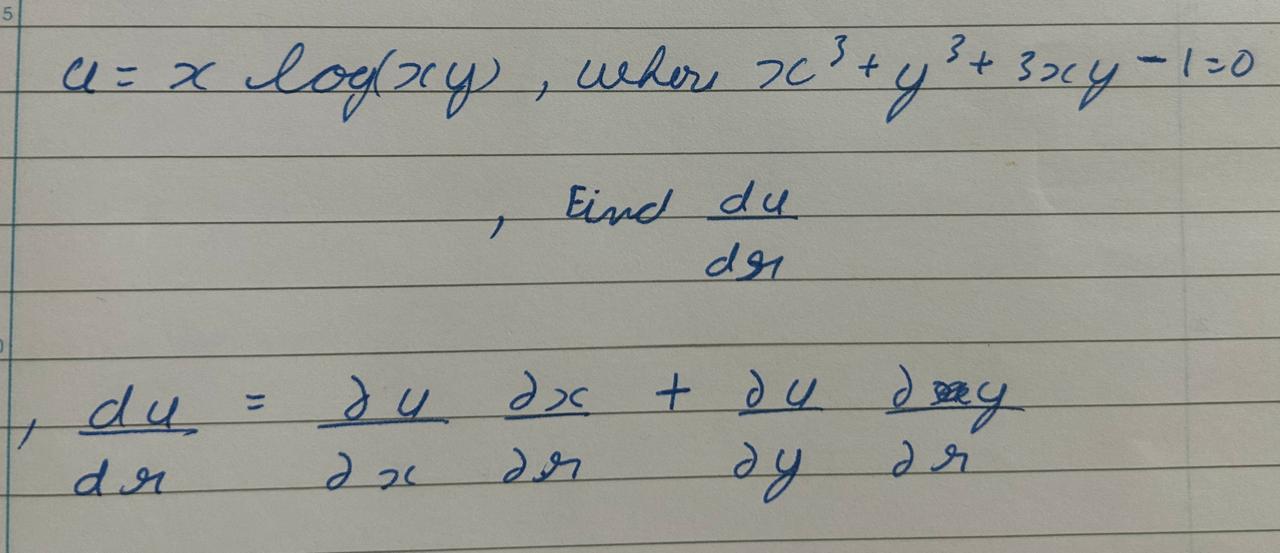 5
u = x log(xy), where x³ + y³ + 3xy - 1 = 0
, Find du/dr
, du/dr = ∂u/∂x ∂x/∂r + ∂u/∂y ∂y/∂r